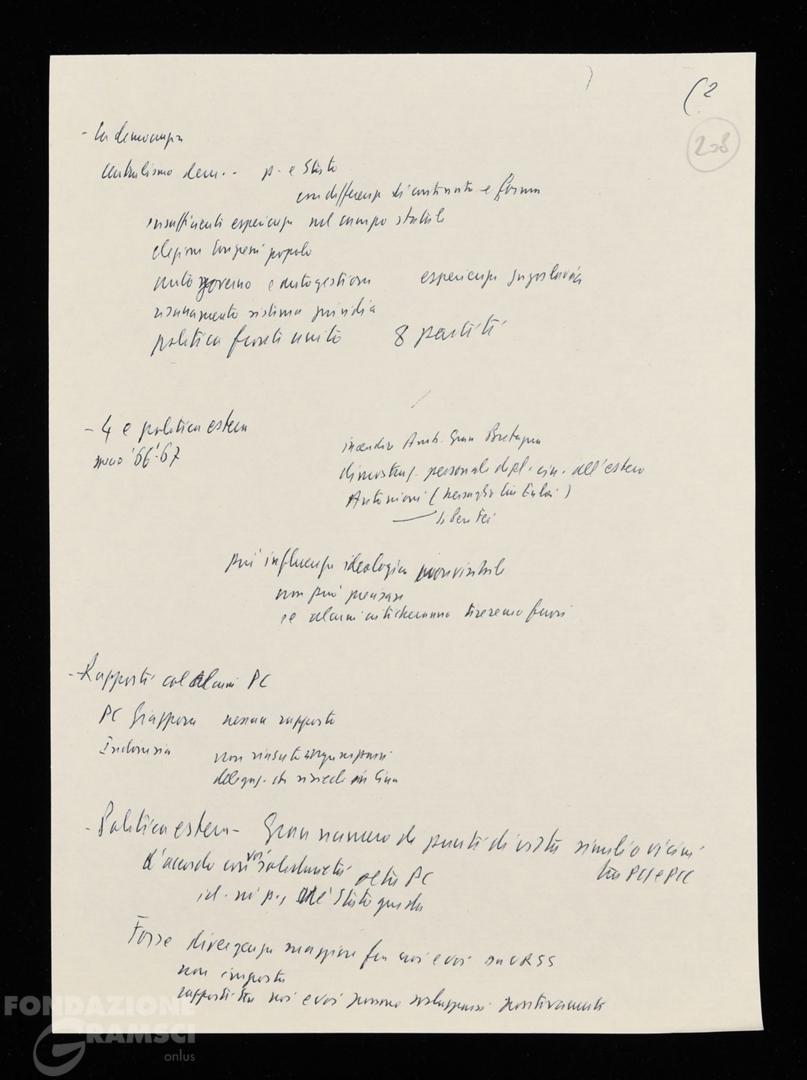 (2
208
- La democrazia
centralismo dem.. p. e Stato
con differenze di contenuto e forma
insufficienti esperienze nel campo statale
elezioni congressi popolo
autogoverno e autogestione esperienza jugoslavia
risanamento sistema giuridia
politica fronte unito 8 partiti
- 4 e politica estera
'66-'67
incendio Amb. Gran Bretagna
dimostraz. personale dipl. cin. all'estero
Antonioni (
più influenza ideologica
non può pensare
se alcuni criticheranno
- Rapporti col alcuni PC
PC Giappone nessun rapporto
Indonesia non
delegaz. che risiede in Cina
- Politica estera - Gran numero di punti di vista simili o vicini
tra PCI e PCC
D'accordo con voi altri PC
id. né p., né Stato guida
Forse divergenza maggiore fra noi e voi su URSS
non importa
rapporti tra noi e voi possono svilupparsi positivamente
FONDAZIONE
GRAMSCI
onlus